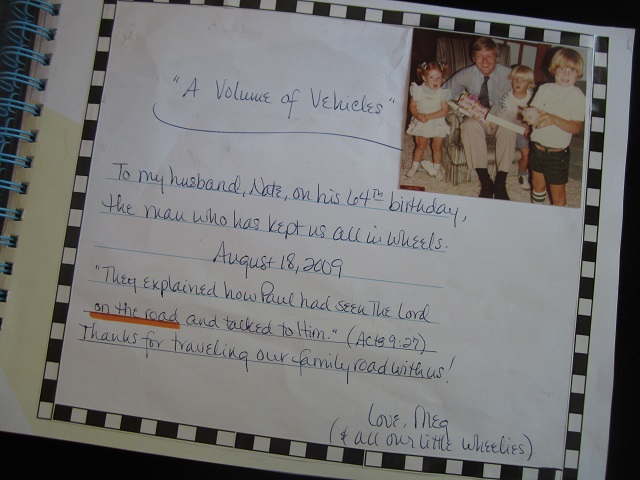 "A Volume of Vehicles"
To my husband, Nate, on his 64th birthday,
the man who has kept us all in wheels.
August 18, 2009
"They explained how Paul had seen the Lord
on the road and talked to Him." (Acts 9:27)
Thanks for traveling our family road with us!
Love, Meg
(& all our little wheelies)